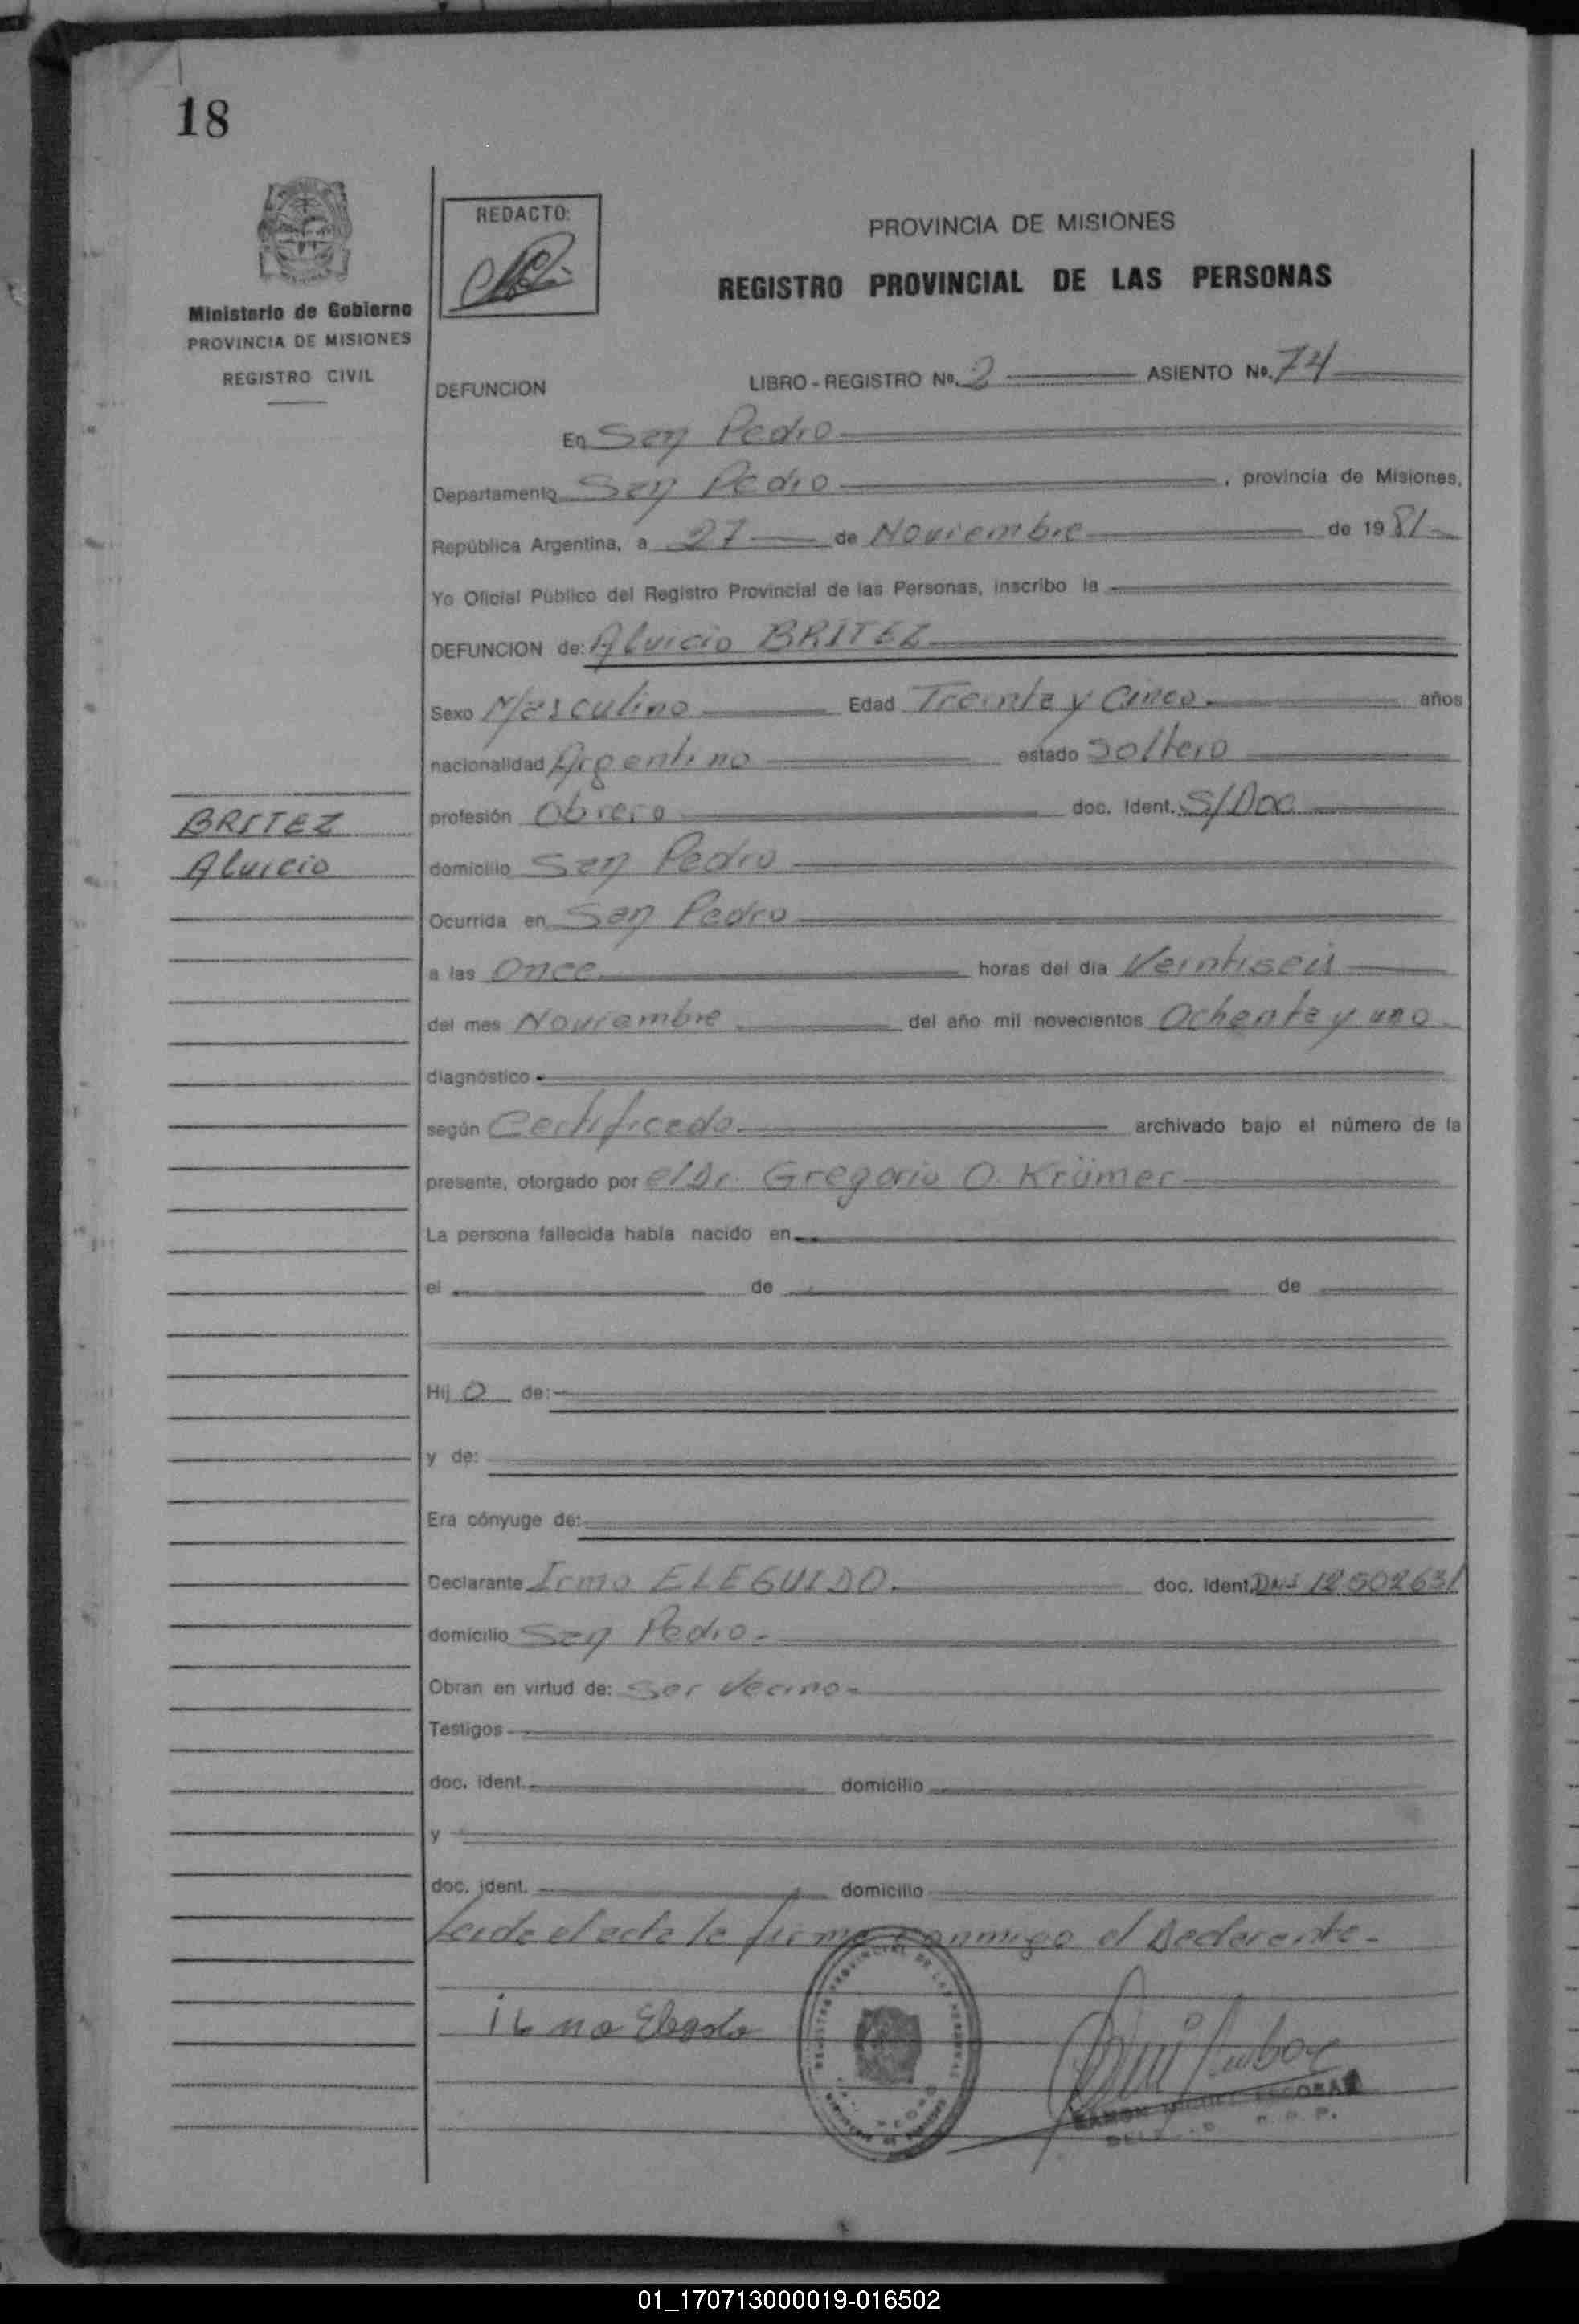 18
REDACTO:
PROVINCIA DE MISIONES
REGISTRO PROVINCIAL DE LAS PERSONAS
Ministerio de Gobierno
PROVINCIA DE MISIONES
REGISTRO CIVIL
DEFUNCION LIBRO - REGISTRO No. 2 ASIENTO No. 74
En San Pedro
Departamento San Pedro, provincia de Misiones,
República Argentina, a 27 de Noviembre de 1981
Yo Oficial Público del Registro Provincial de las Personas, inscribo la
DEFUNCION de: Aluicio BRITEZ
Sexo Masculino Edad Treinta y Cinco años
nacionalidad Argentino estado Soltero
profesión Obrero doc. Ident. S/Doc
BRITEZ
Aluicio
domicilio San Pedro
Ocurrida en San Pedro
a las Once horas del día Veintiseis
del mes Noviembre del año mil novecientos Ochenta y uno
diagnóstico
según Certificado archivado bajo el número de la
presente, otorgado por el Dr. Gregorio O. Krümer
La persona fallecida había nacido en
el de de
Hij o de:
y de:
Era cónyuge de:
Declarante Irmo ELEGUIDO doc. ident. DNI 12502631
domicilio San Pedro.
Obran en virtud de: Ser Vecino
Testigos
doc. ident. domicilio
y
doc. ident. domicilio
Leida el acta la firma conmigo el Declarante.
REGISTRO PROVINCIAL DE LAS PERSONAS
RAMON MIGUEL ESCOBAR